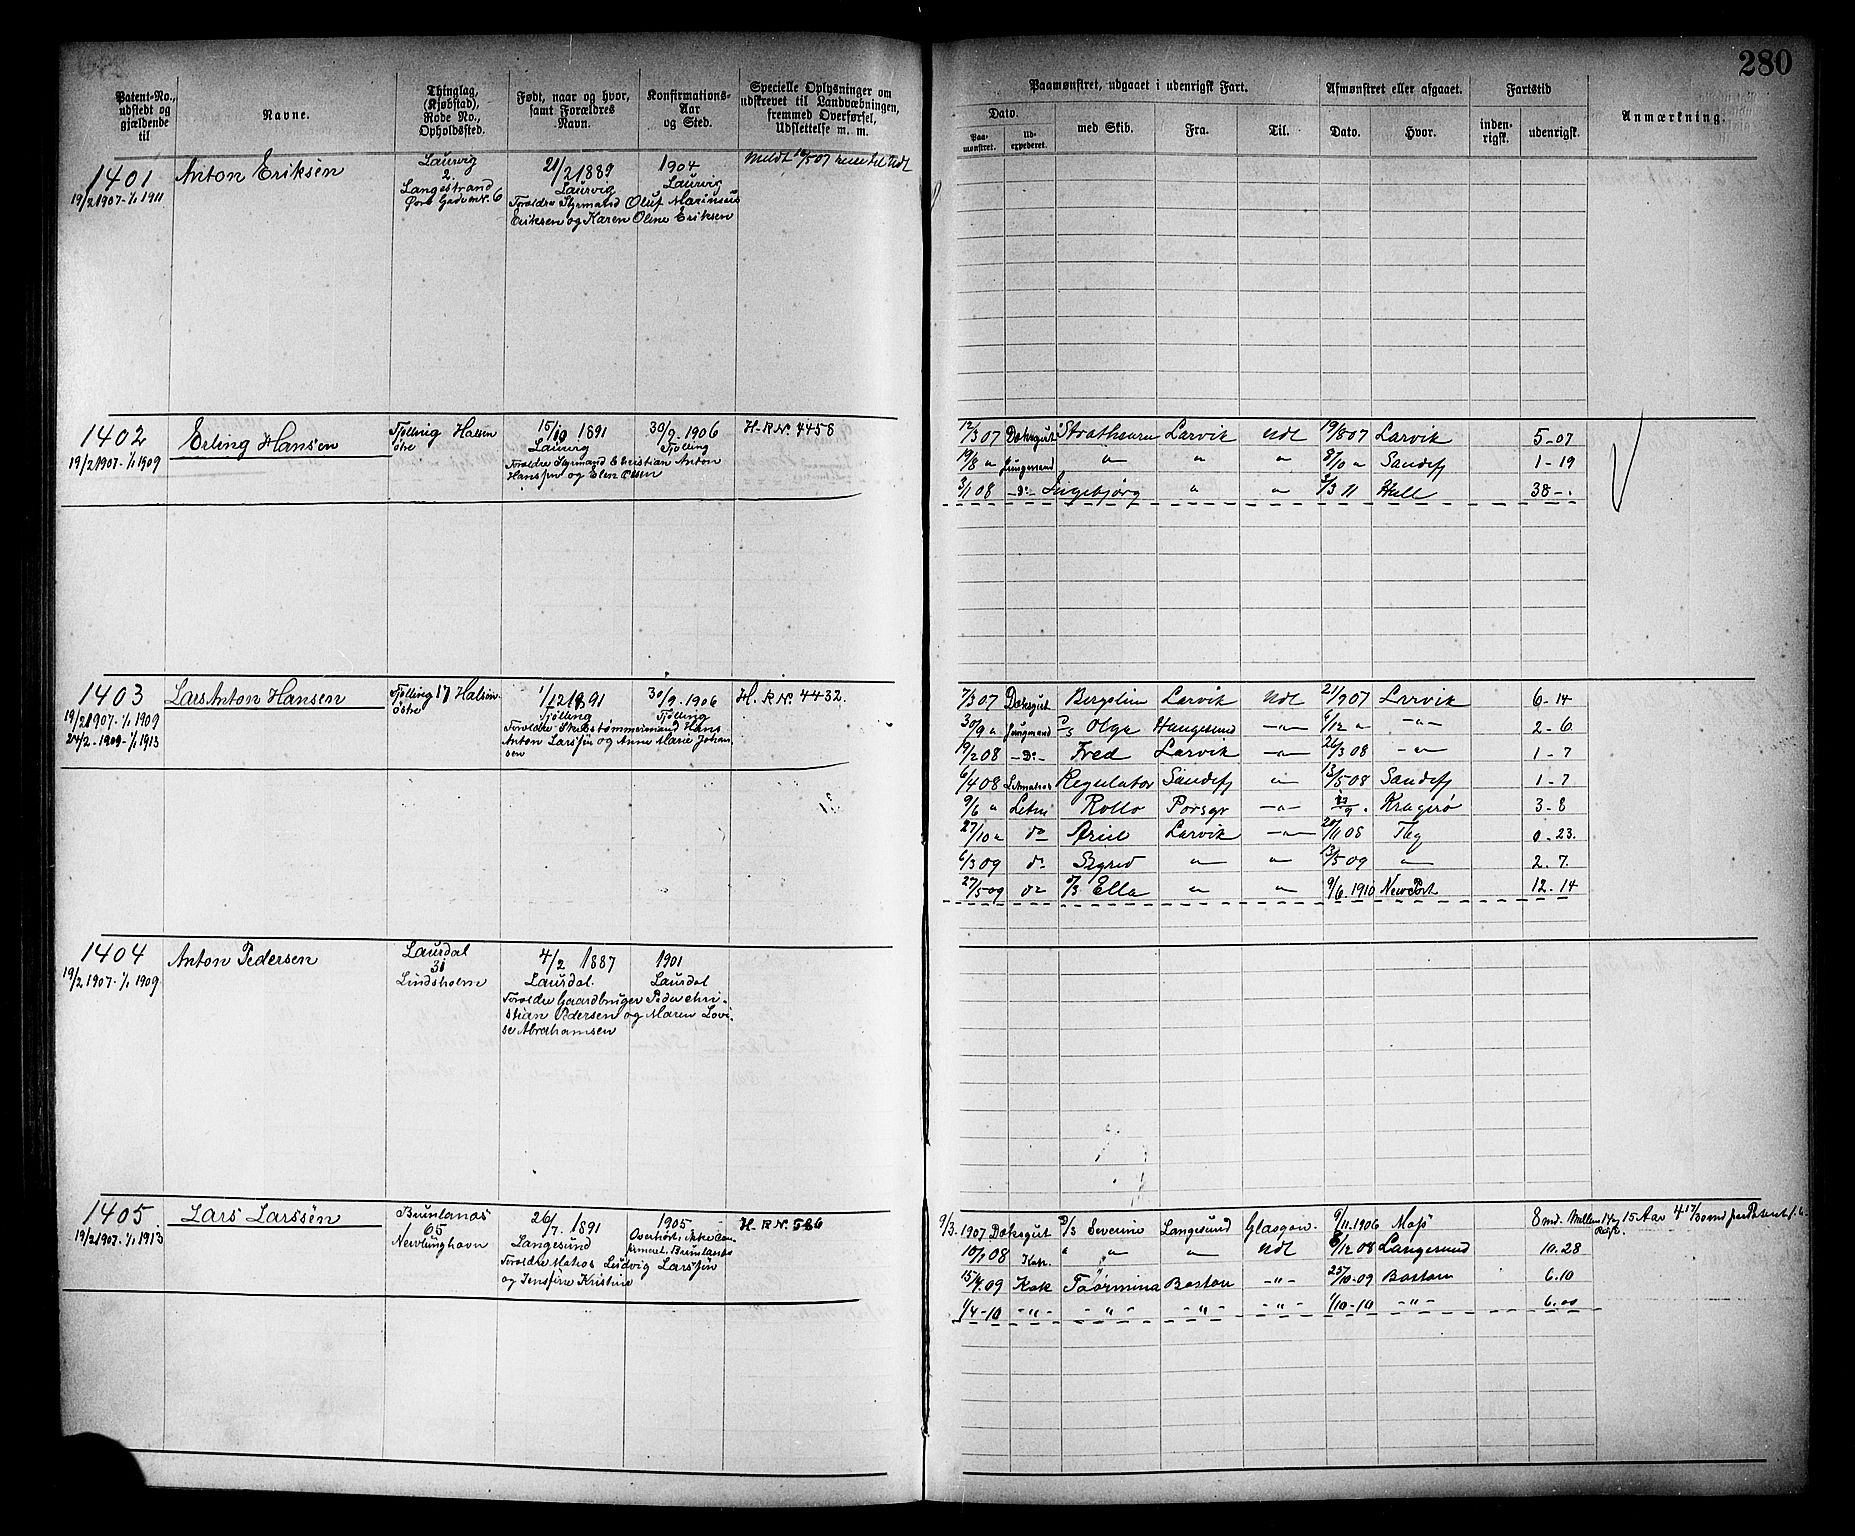 280
Patent-No., udstedt og gjældende til
Navne.
Thinglag, (Kjøbstad), Rode No., Opholdssted.
Født, naar og hvor, samt Forældres Navn.
Konfirmations-Aar og Sted.
Specielle Oplysninger om udskrevet til Landvæbningen, fremmed Overførsel, Udslettelse m. m.
Paamønstret, udgaaet i udenrigsk Fart.
Afmønstret eller afgaaet.
Fartstid
Anmærkning.
Dato.
Paamønstret.
Udexpederet.
med Skib.
Fra.
Til.
Dato.
Hvor.
indenrigsk.
udenrigsk.
1401
19/2 1907 - 1/1 1911
Anton Eriksen
Laurvig
2.
Langestrand
21/2 1889
Laurvig
Forældre Styrmand Oluf Marinius
Eriksen og Karen Oline Eriksen
1904
Laurvig
Meldt 16/5 07 reise til Udl
1402
19/2 1907 - 1/1 1909
Erling Hansen
Tjølling Halsen
østre
15/10 1891
Laurvig
Forældre Styrmand Christian Anton
Hanssen og Elen Olsen
30/9 - 1906
Tjølling
H-R No. 4458
12/3 07 Dæksgut Strathearn Larvik Udl 19/8 07 Larvik 5-07
19/8 " Jungmand " " " 8/10 " Sandefj 1-19
3/1 08 -Do- Ingebjørg " " 3/3 11 Hull 38-.
1403
19/2 1907 - 1/1 1909
24/2 - 1909 - 1/1 1913
Lars Anton Hansen
Tjølling 17 Halsen
østre
1/12 1891
Tjølling
Forældre Skibstømmermand Hans
Anton Larssen og Anne Marie Johan-
sen
30/9 - 1906
Tjølling
H. R No. 4432.
7/3 07 Dæksgut Bergslien Larvik Udl 21/9 07 Larvik 6-14
30/9 " Jungmand D/S Olga Haugesund -"- 6/12 " -"- 2-6
19/2 08 -Do- Fred Larvik -"- 26/3 08 -"- 1-7
6/4 08 Letmatros Regulator Sandefj " 13/5 08 Sandefj 1-7
9/6 " Letm Rollo Porsgr -"- Kragerø 3-8
27/10 " do Ariel Larvik -"- 20/11 08 Tbg 0-23.
6/3 09 do Sigrid " " 13/5 09 " 2.7.
27/5 09 do D/S Ella " " 9/6. 1910 NewPort 12-14
1404
19/2 1907 - 1/1 1909
Anton Pedersen
Laurdal
31
Lindsholm
4/2 1887
Laurdal
Forældre Gaardbruger Peder Chri-
stian Pedersen og Maren Lovi-
se Abrahamsen
1901
Laurdal
1405
19/2 1907 - 1/1 1913
Lars Larssen
Brunlanæs
65
Nevlunghavn
26/7 1891
Langesund
Forældre Matros Ludvig Larssen
og Jensfine Kristine
1905
Overhørt, ikke Con-
firmert. Brunlanæs
H. R No. 586
9/3. 1907 Dæksgut D/S Severin Langesund Glasgow. 9/11. 1906 Moss 8 md.
10/1 08 Kok. " " " Udl 8/12 08 Langesund 10.28
15/4 09 Kok Taormina Boston -"- 25/10-09 Boston 6.10
1/4-10 -"- -"- -"- -"- 1/10-10 -"- 6.00